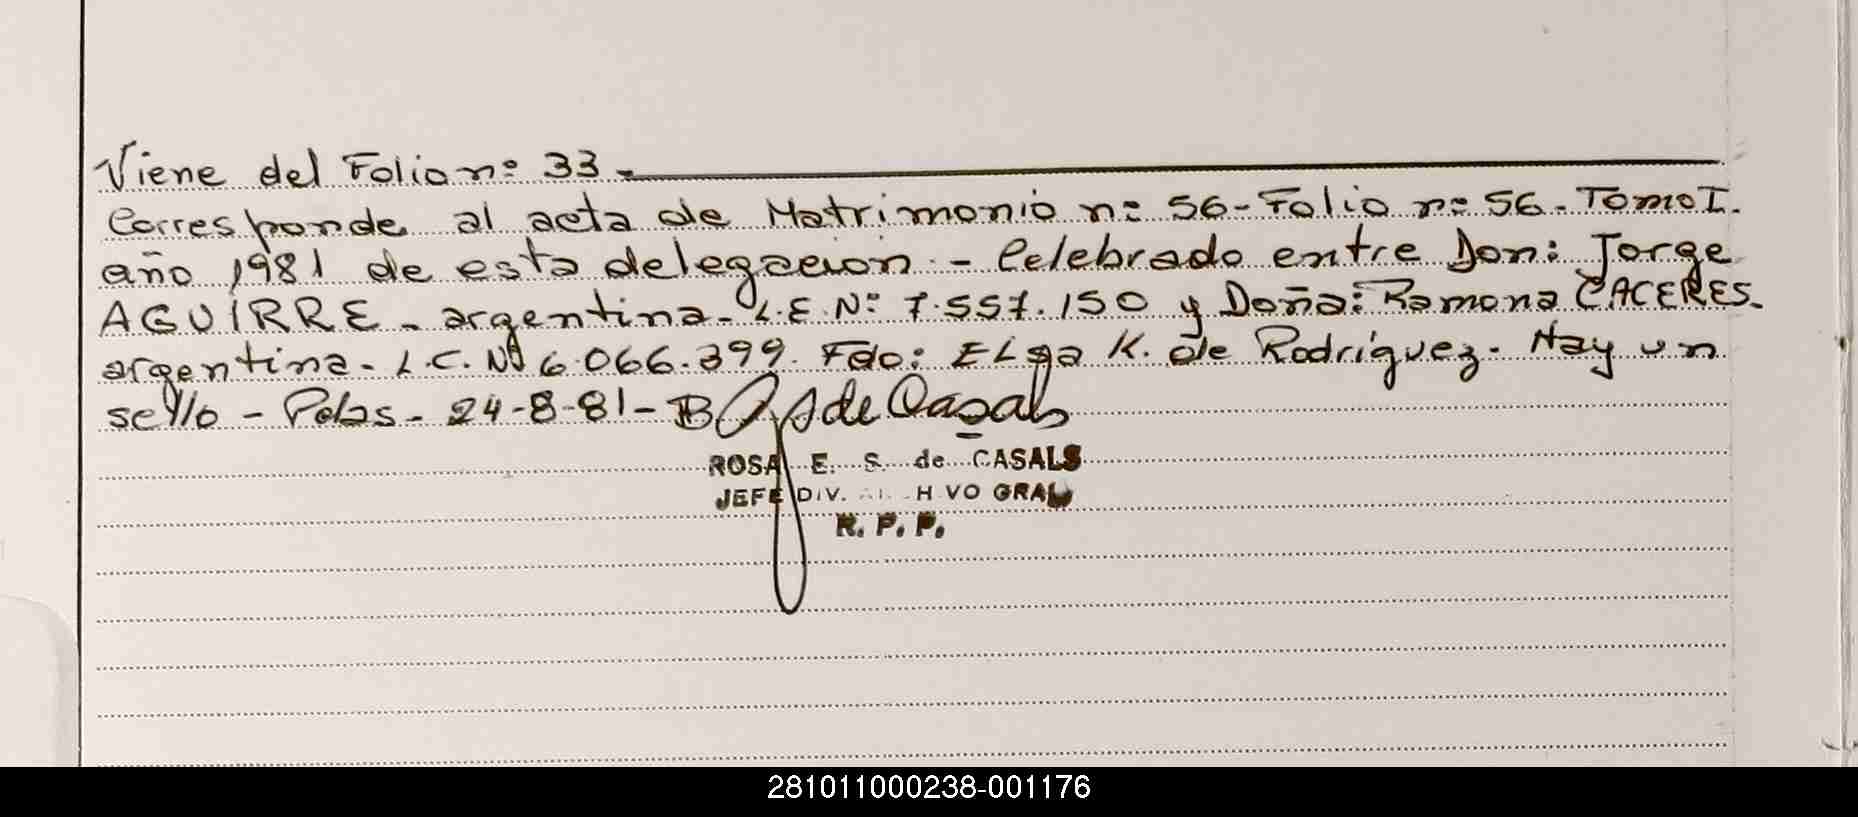 Viene del Folio nº 33.
Corresponde al acta de Matrimonio nº 56-Folio nº 56-Tomo I.
año 1981 de esta delegación - Celebrado entre Don: Jorge
AGUIRRE - argentina - L.E. Nº 7.557.150 y Doña: Ramona CACERES.
argentina - L.C. Nº 6.066.399. Fdo: ELga K. de Rodríguez. Hay un
sello - Pdas - 24-8-81 -
de Casals
ROSA E. S. de CASALS
JEFE DIV. GRAL
R. P. P.
281011000238-001176